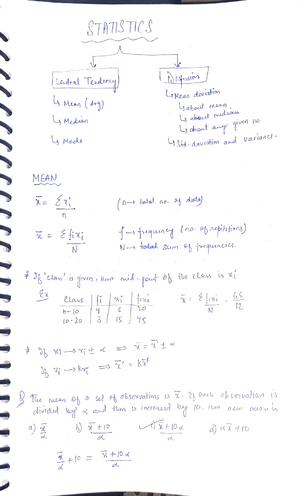 STATISTICS
Central Tendency
Dispersion
↳ Mean (Avg)
↳ Median
↳ Mode
↳ Mean deviation
↳ about mean
↳ about median
↳ about any given no.
↳ Std. deviation and variance.
MEAN
x̄ = Σxi / n (n → total no. of data)
x̄ = Σfixi / N f → frequency (no. of repetitions)
N → total sum of frequencies.
* If 'class' is given, then mid-point of the class is xi
Ex Class | fi | xi | fixi x̄ = Σfixi / N = 65 / 12
0-10 | 4 | 5 | 20
10-20 | 3 | 15 | 45
* If xi → xi ± α ⟹ x̄' = x̄ ± α
If xi → kxi ⟹ x̄' = kx̄
Q The mean of a set of observations is x̄. If each observation is
divided by α and then is increased by 10, then new mean is
a) x̄/α b) x̄+10/α c) x̄+10α/α d) αx̄+10
x̄/α + 10 = x̄+10α/α